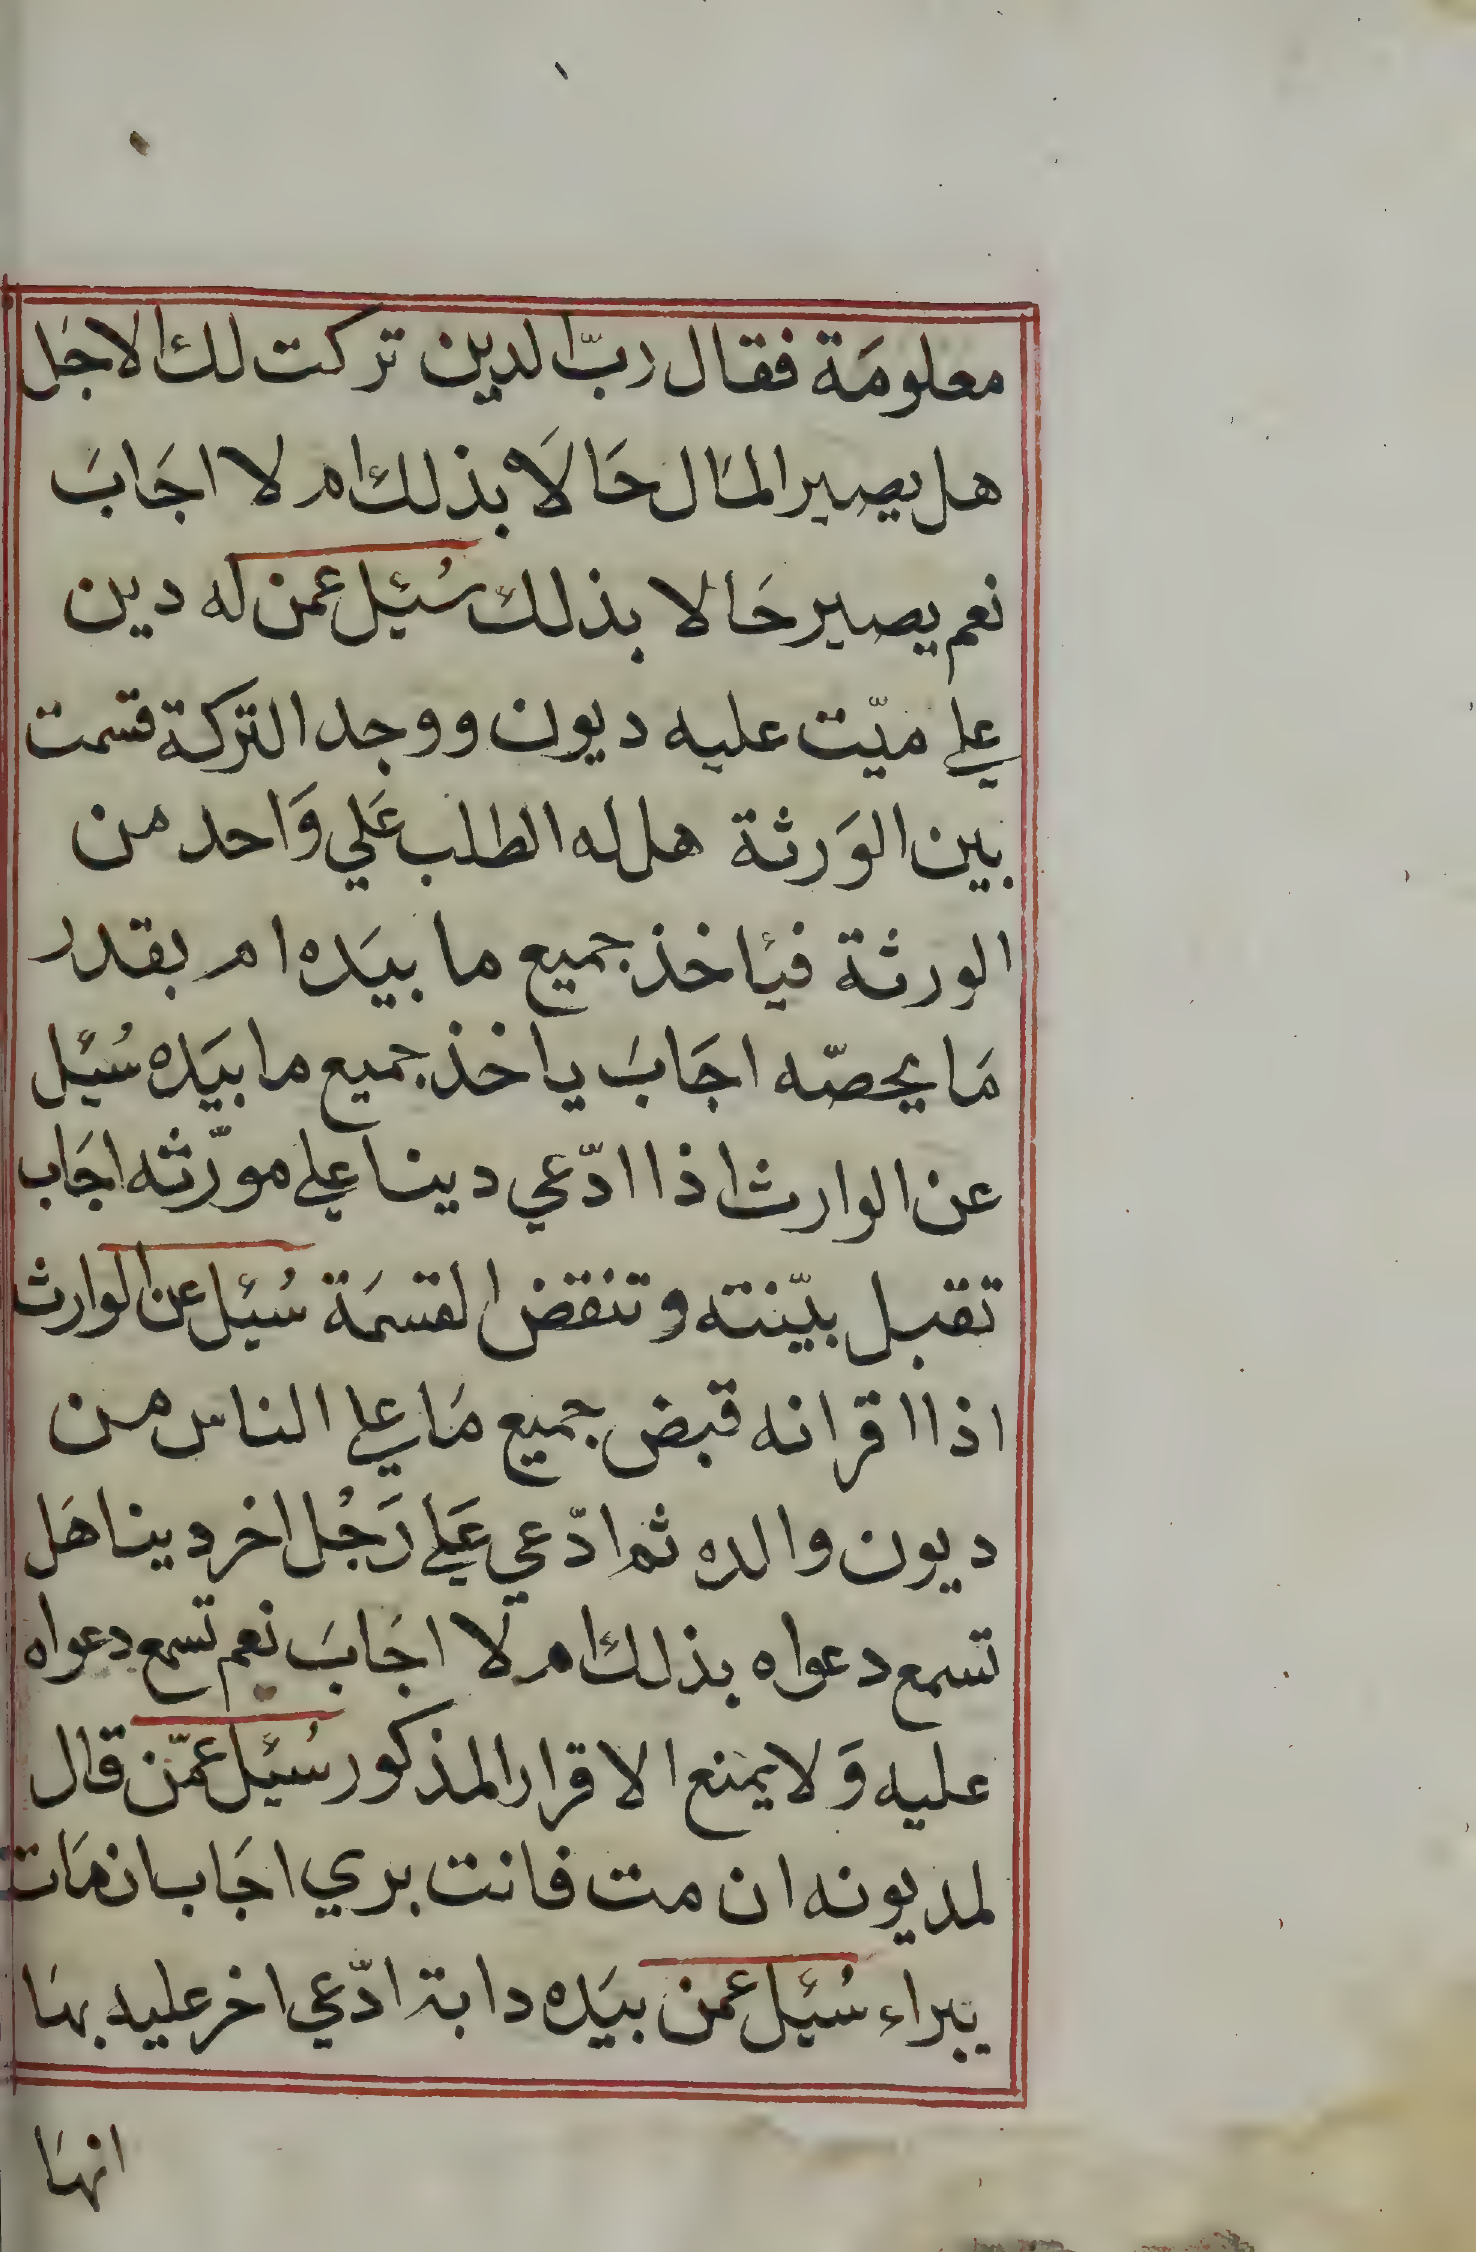 معلومَة فقال ربّ الدين تركت لك الاجَل
هل يصير المَال حَالَا بذلك ام لا اجَابَ
نعم يصير حَالا بذلك سُئيل عمن له دين
علي ميّت عليه ديون ووجد التركة قسمت
بين الوَرثة هل له الطلب عَلي وَاحد من
الورثة فيئاخذ جميع ما بيَده ام بقدر
مَا يحصّه اجَابَ ياخذ جميع ما بيَده سُئيل
عن الوارث اذا ادّعي دينا علي مورّثه اجَاب
تقبل بيّنته وتنقض القسمَة سُئيل عن الوارث
اذا اقر انه قبض جميع مَا علي الناس من
ديون والده ثم ادّعي عَلي رَجُل اخر دينا هَل
تسمع دعواه بذلك ام لا اجَابَ نعم تسمع دعواه
عليه وَلا يمنع الاقرار المذكور سُئيل عمّن قال
لمديونه ان مت فانت بري اجَاب ان مَات
يبراء سُئيل عمن بيَده دابة ادّعي اخر عليه بهَا
انهَا